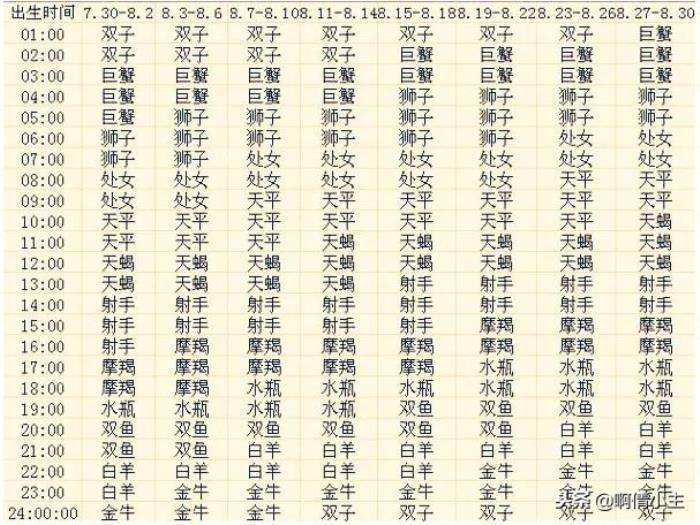 出生时间 7.30-8.2 8.3-8.6 8.7-8.10 8.11-8.14 8.15-8.18 8.19-8.22 8.23-8.26 8.27-8.30
01:00 双子 双子 双子 双子 双子 双子 双子 巨蟹
02:00 双子 双子 双子 双子 巨蟹 巨蟹 巨蟹 巨蟹
03:00 巨蟹 巨蟹 巨蟹 巨蟹 巨蟹 巨蟹 巨蟹 巨蟹
04:00 巨蟹 巨蟹 巨蟹 巨蟹 狮子 狮子 狮子 狮子
05:00 巨蟹 狮子 狮子 狮子 狮子 狮子 狮子 狮子
06:00 狮子 狮子 狮子 狮子 狮子 狮子 处女 处女
07:00 狮子 狮子 处女 处女 处女 处女 处女 处女
08:00 处女 处女 处女 处女 处女 处女 天平 天平
09:00 处女 处女 天平 天平 天平 天平 天平 天平
10:00 天平 天平 天平 天平 天平 天平 天平 天蝎
11:00 天平 天平 天平 天平 天蝎 天蝎 天蝎 天蝎
12:00 天蝎 天蝎 天蝎 天蝎 天蝎 天蝎 天蝎 天蝎
13:00 天蝎 天蝎 天蝎 天蝎 射手 射手 射手 射手
14:00 射手 射手 射手 射手 射手 射手 射手 射手
15:00 射手 射手 射手 射手 射手 摩羯 摩羯 摩羯
16:00 射手 摩羯 摩羯 摩羯 摩羯 摩羯 摩羯 摩羯
17:00 摩羯 摩羯 摩羯 摩羯 摩羯 水瓶 水瓶 水瓶
18:00 摩羯 摩羯 水瓶 水瓶 水瓶 水瓶 水瓶 水瓶
19:00 水瓶 水瓶 水瓶 水瓶 双鱼 双鱼 双鱼 双鱼
20:00 双鱼 双鱼 双鱼 双鱼 双鱼 双鱼 白羊 白羊
21:00 双鱼 双鱼 白羊 白羊 白羊 白羊 白羊 白羊
22:00 白羊 白羊 白羊 白羊 白羊 金牛 金牛 金牛
23:00 白羊 金牛 金牛 金牛 金牛 金牛 金牛 金牛
24:00:00 金牛 金牛 金牛 双子 双子 双子 双子 双子
头条 @啊倩小主